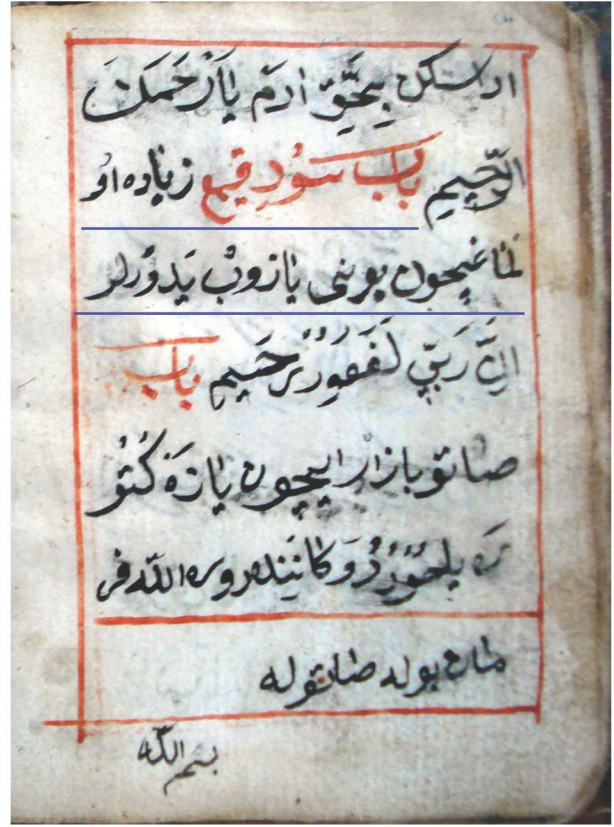 بحق ادم يا رحمن
الرحيم باب سود قيع زياده او
لماغيچون بونى يازوب يدورلر
ان ربى لغفور رحيم باب
صاتو بازار ايچون يازه كتو
ره دوكانينده الله
بوله صاتوله
بسم الله